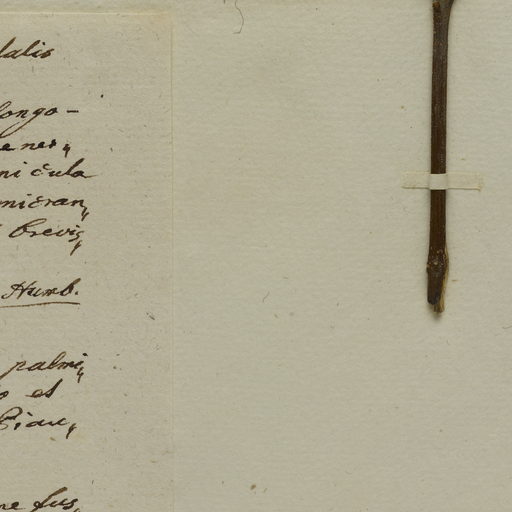 dalis
longo-
e ner„
nicula
micran„
brevis„
Humb.
palmi„
o et
ne fus„